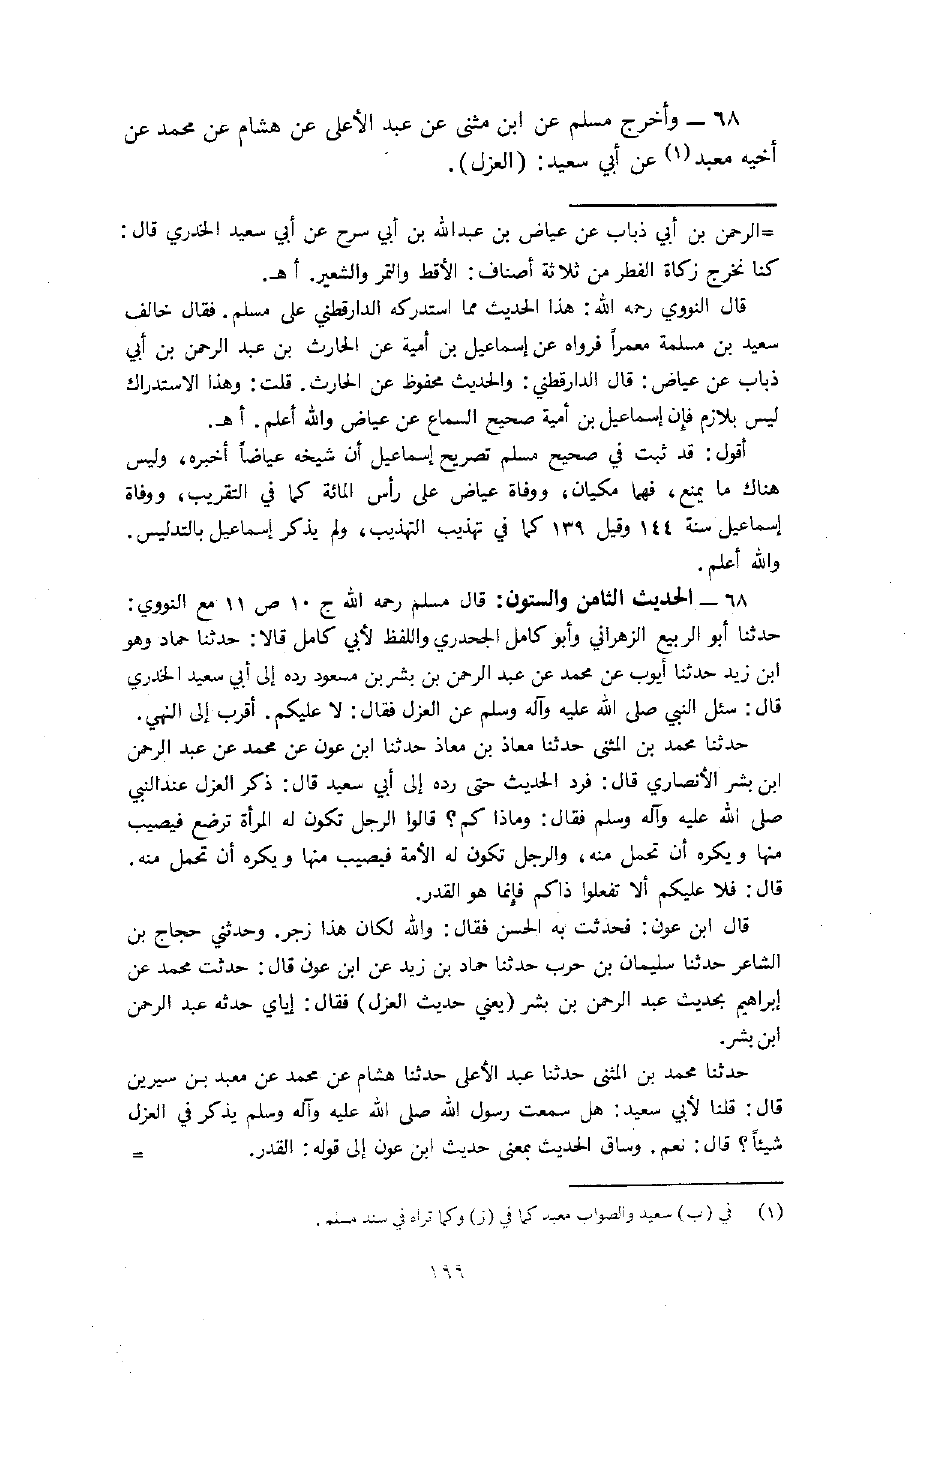 ٦٨ ــ وأخرج مسلم عن ابن مثنى عن عبد الأعلى عن هشام عن محمد عن
أخيه معبد (١) عن أبي سعيد: (العزل).
=الرحمن بن أبي ذباب عن عياض بن عبدالله بن أبي سرح عن أبي سعيد الخدري قال:
كنا نخرج زكاة الفطر من ثلاثة أصناف: الأقط والتمر والشعير. أ هـ.
قال النووي رحمه الله: هذا الحديث مما استدركه الدارقطني على مسلم. فقال خالف
سعيد بن مسلمة معمراً فرواه عن إسماعيل بن أمية عن الحارث بن عبد الرحمن بن أبي
ذباب عن عياض: قال الدارقطني: والحديث محفوظ عن الحارث. قلت: وهذا الاستدراك
ليس بلازم فإن إسماعيل بن أمية صحيح السماع عن عياض والله أعلم. أ هـ.
أقول: قد ثبت في صحيح مسلم تصريح إسماعيل أن شيخه عياضاً أخبره، وليس
هناك ما يمنع، فهما مكيان، ووفاة عياض على رأس المائة كما في التقريب، ووفاة
إسماعيل سنة ١٤٤ وقيل ١٣٩ كما في تهذيب التهذيب، ولم يذكر إسماعيل بالتدليس.
والله أعلم.
٦٨ ــ الحديث الثامن والستون: قال مسلم رحمه الله ج ١٠ ص ١١ مع النووي:
حدثنا أبو الربيع الزهراني وأبو كامل الجحدري واللفظ لأبي كامل قالا: حدثنا حماد وهو
ابن زيد حدثنا أيوب عن محمد عن عبد الرحمن بن بشر بن مسعود رده إلى أبي سعيد الخدري
قال: سئل النبي صلى الله عليه وآله وسلم عن العزل فقال: لا عليكم. أقرب إلى النهي.
حدثنا محمد بن المثنى حدثنا معاذ بن معاذ حدثنا ابن عون عن محمد عن عبد الرحمن
ابن بشر الأنصاري قال: فرد الحديث حتى رده إلى أبي سعيد قال: ذكر العزل عندالنبي
صلى الله عليه وآله وسلم فقال: وماذا كم؟ قالوا الرجل تكون له المرأة ترضع فيصيب
منها ويكره أن تحمل منه، والرجل تكون له الأمة فيصيب منها ويكره أن تحمل منه.
قال: فلا عليكم ألا تفعلوا ذاكم فإنما هو القدر.
قال ابن عون: فحدثت به الحسن فقال: والله لكان هذا زجر. وحدثني حجاج بن
الشاعر حدثنا سليمان بن حرب حدثنا حماد بن زيد عن ابن عون قال: حدثت محمد عن
إبراهيم بحديث عبد الرحمن بن بشر (يعني حديث العزل) فقال: إياي حدثه عبد الرحمن
ابن بشر.
حدثنا محمد بن المثنى حدثنا عبد الأعلى حدثنا هشام عن محمد عن معبد بن سيرين
قال: قلنا لأبي سعيد: هل سمعت رسول الله صلى الله عليه وآله وسلم يذكر في العزل
شيئاً؟ قال: نعم. وساق الحديث بمعنى حديث ابن عون إلى قوله: القدر. =
(١) في (ب) سعيد والصواب معبد كما في (ز) وكما تراه في سند مسلم.
١٩٩